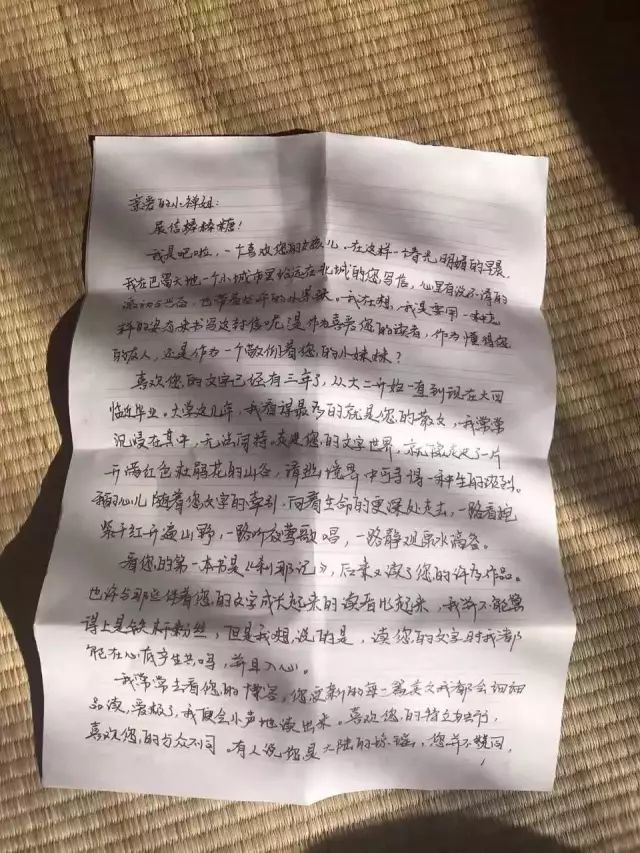 亲爱的小禅姐:
展信棒棒糖!
我是吧啦,一个喜欢您的女孩儿。在这样一个春光明媚的早晨,
我在巴蜀大地一个小城市里给远在北城的您写信,心里有说不清的
激动与忐忑,也带着些许的小紧张。我在想,我是要用一种
的姿态来书写这封信呢?是作为喜爱您的读者,作为懂得您
的友人,还是作为一个敬仰着您的小妹妹?
喜欢您的文字已经有三年了,从大二开始一直到现在大四
临近毕业。大学这几年,我看得最多的就是您的散文,我常常
沉浸在其中,无法自持。走进您的文字世界,就像走进了一片
开满红色杜鹃花的山谷,清幽境界中可寻得一种生的
我的心儿随着您文字的牵引,向着生命的更深处走去,一路看姹
紫千红开遍山野,一路听夜莺歌唱,一路静观泉水滴答。
看您的第一本书是《刹那记》,后来又读了您的许多作品。
也许与那些伴着您的文字成长起来的读者比起来,我并不能算
得上是铁杆粉丝,但是我想说的是,读您的文字时我都
能在心底产生共鸣,并且入心。
我常常去看您的博客,您更新的每一篇美文我都会细细
品读,爱极了,我便会小声地读出来。喜欢您的特立独行,
喜欢您的与众不同。有人说您是大陆的琼瑶,您并不赞同,